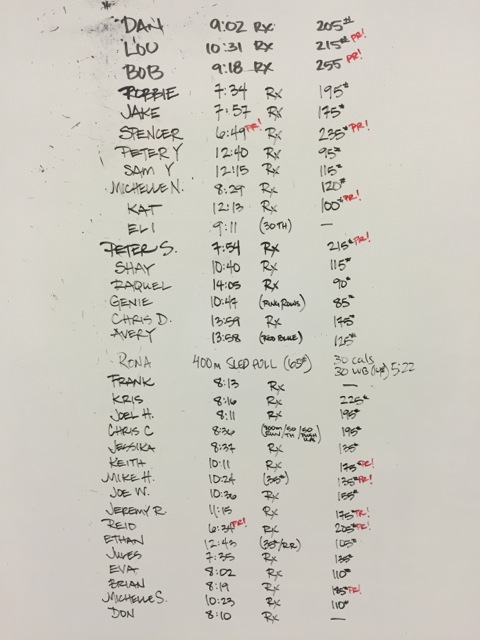 DAN 9:02 RX 205#
LOU 10:31 RX 215# PR!
BOB 9:18 RX 255 PR!
ROBBIE 7:34 RX 195#
JAKE 7:57 RX 175#
SPENCER 6:49 PR! RX 235# PR!
PETER Y 12:40 RX 95#
SAM Y 12:15 RX 115#
MICHELLE N. 8:29 RX 120#
KAT 12:13 RX 100# PR!
ELI 9:11 (30TH) —
PETER S. 7:54 RX 215# PR!
SHAY 10:40 RX 115#
RAQUEL 14:05 RX 90#
GENIE 10:47 (RING ROWS) 85#
CHRIS D. 13:59 RX 175#
AVERY 13:58 (RED BLUE) 125#
RONA 400M SLED PULL (65#) 30 cals
30 WB (14#) 5:22
FRANK 8:13 RX —
KRIS 8:16 RX 225#
JOEL H. 8:11 RX 195#
CHRIS C 8:36 195#
JESSIKA 8:37 RX 135#
KEITH 10:11 RX 175# PR!
MIKE H. 10:24 (35#) 135# PR!
JOE W. 10:36 RX 155#
JEREMY R. 11:15 RX 175# PR!
REID 6:34 PR! RX 205# PR!
ETHAN 12:43 (35#/RR) 105#
JULES 7:35 RX 135#
EVA 8:02 RX 110#
BRIAN 8:19 RX 185# PR!
MICHELLE S. 10:23 RX 110#
DON 8:10 RX —